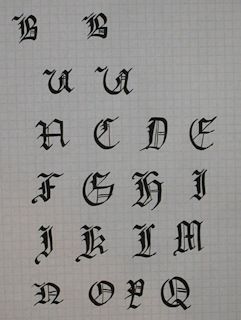 B B
U U
A C D E
F G H I
J K L M
N O P Q